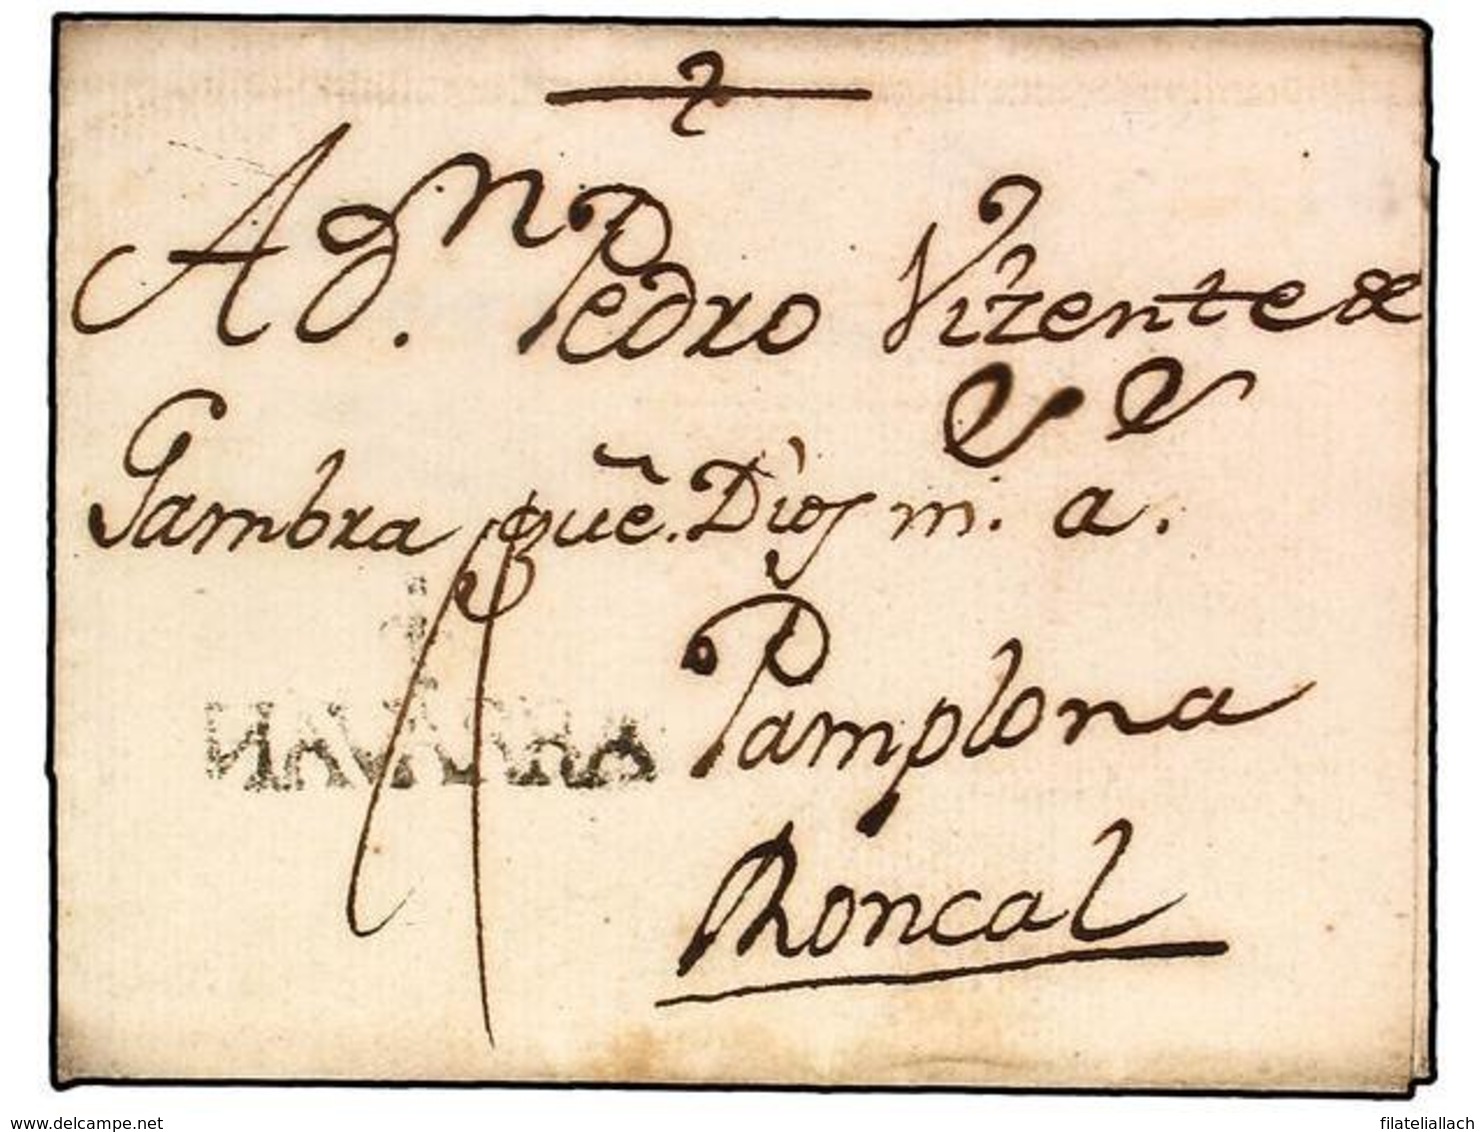 A Dn. Pedro Vizente de
Gambra quē. Dios m. a.
NAVARRA
Pamplona
Roncal
www.delcampe.net
filateliallach